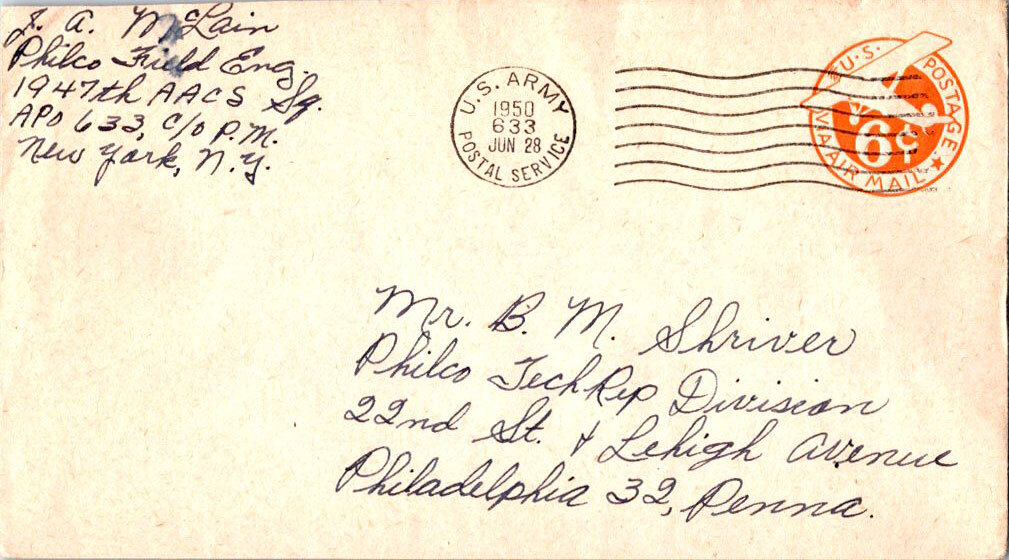 J. A. McLain
Philco Field Eng.
1947th AACS Sq.
APO 633, C/O P.M.
New York, N.Y.
U.S. ARMY
1950
633
JUN 28
POSTAL SERVICE
U.S. POSTAGE
6¢
VIA AIR MAIL
Mr. B. M. Shriver
Philco TechRep Division
22nd St. & Lehigh Avenue
Philadelphia 32, Penna.